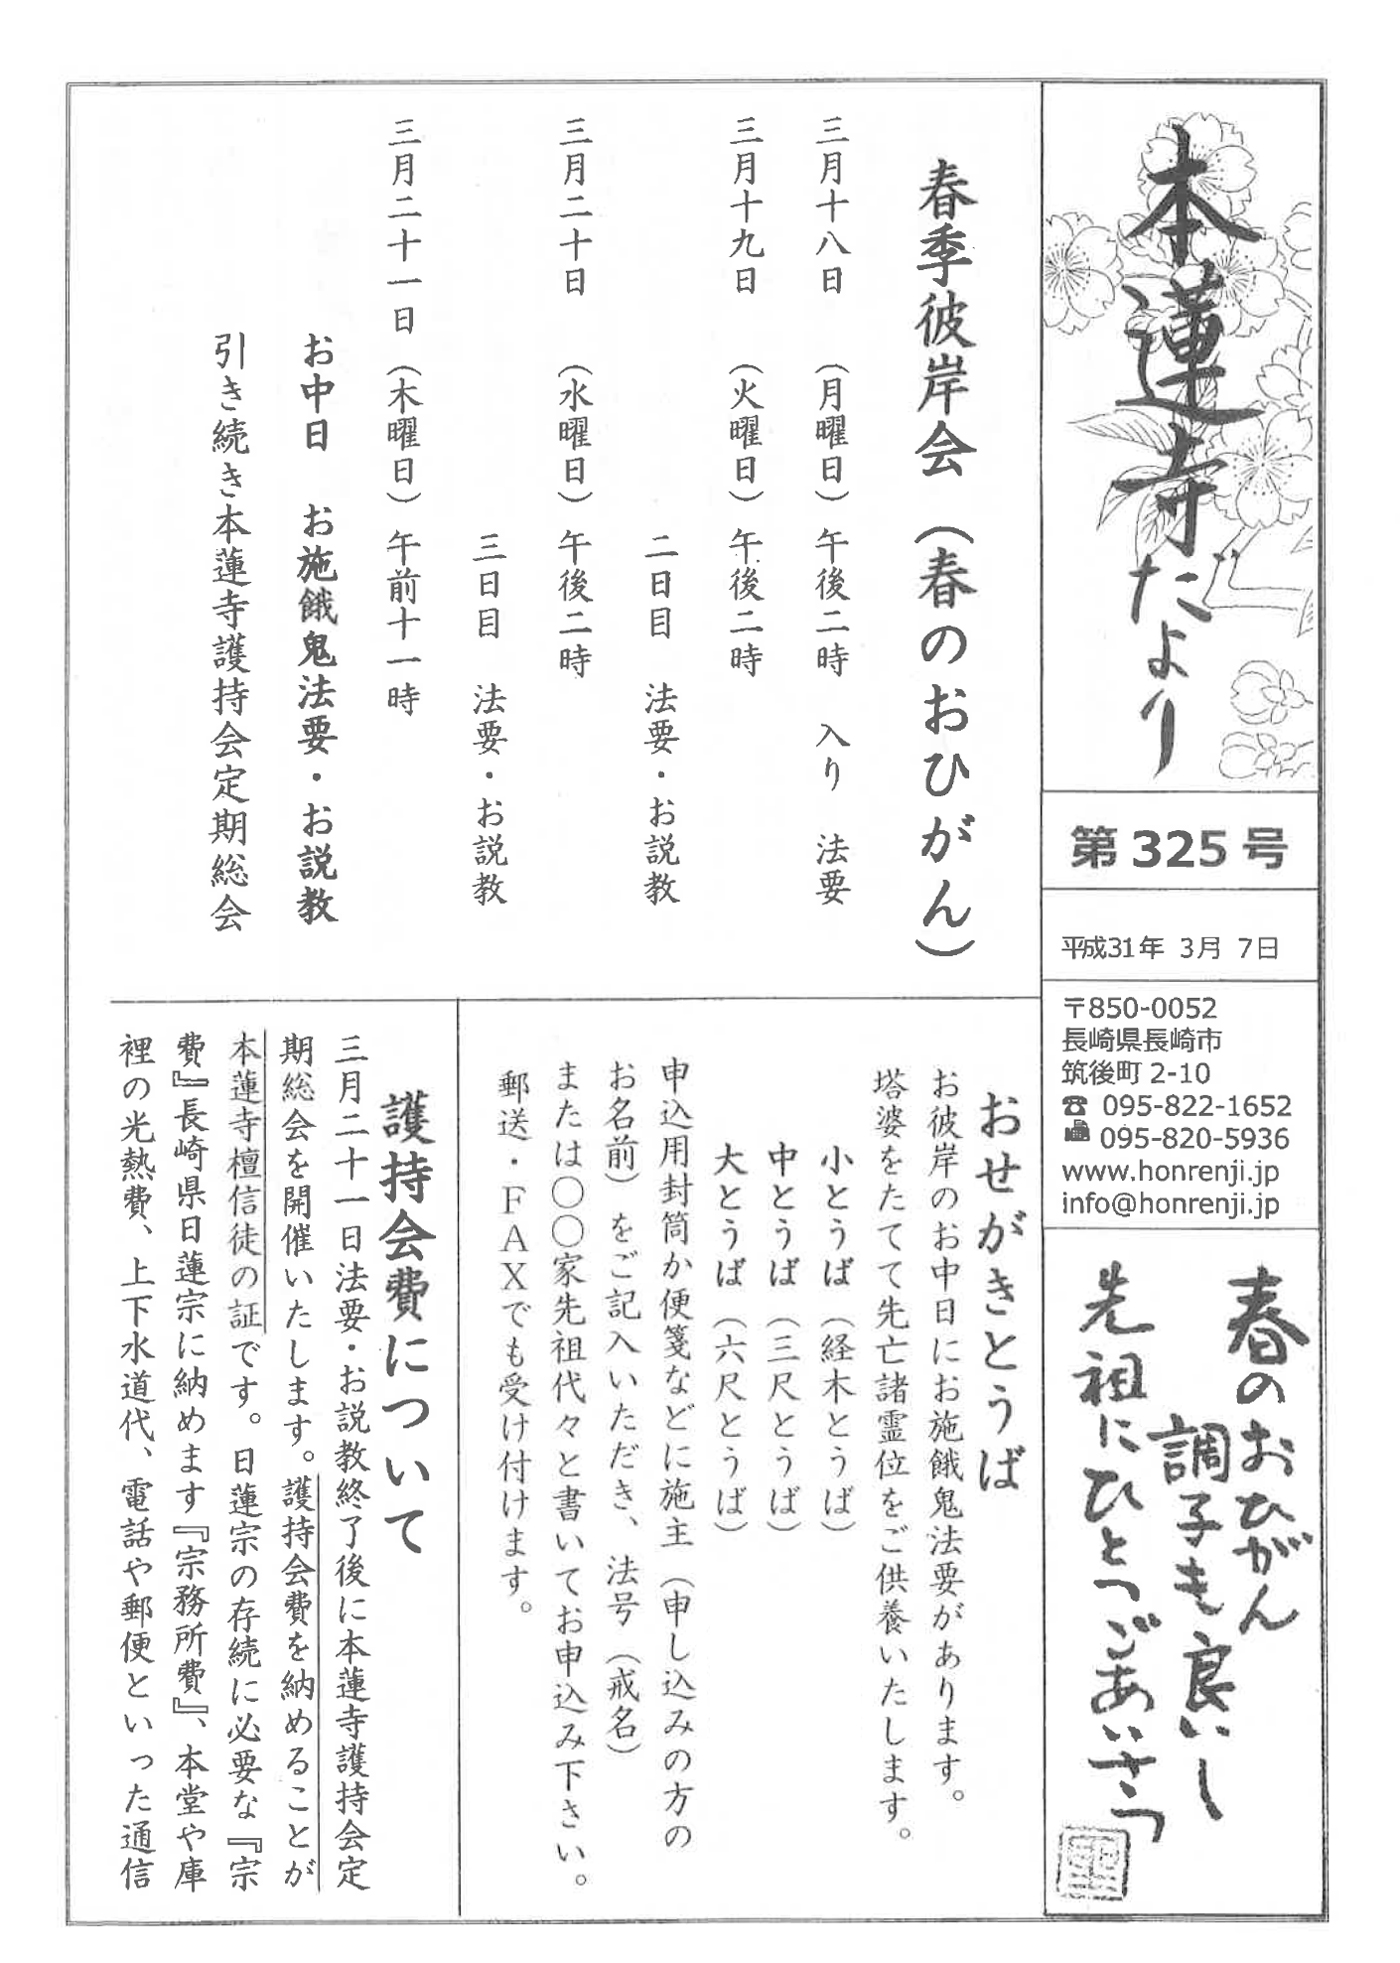 本蓮寺だより
第325号
平成31年 3月 7日
〒850-0052
長崎県長崎市
筑後町 2-10
☎ 095-822-1652
095-820-5936
www.honrenji.jp
info@honrenji.jp
春のおひがん
調子も良いし
先祖にひとつごあいさつ
春季彼岸会（春のおひがん）
三月十八日 （月曜日）午後二時 入り 法要
三月十九日 （火曜日）午後二時
二日目 法要・お説教
三月二十日 （水曜日）午後二時
三日目 法要・お説教
三月二十一日（木曜日）午前十一時
お中日 お施餓鬼法要・お説教
引き続き本蓮寺護持会定期総会
おせがきとうば
お彼岸のお中日にお施餓鬼法要があります。
塔婆をたてて先亡諸霊位をご供養いたします。
小とうば（経木とうば）
中とうば（三尺とうば）
大とうば（六尺とうば）
申込用封筒か便箋などに施主（申し込みの方の
お名前）をご記入いただき、法号（戒名）
または〇〇家先祖代々と書いてお申込み下さい。
郵送・ＦＡＸでも受け付けます。
護持会費について
三月二十一日法要・お説教終了後に本蓮寺護持会定
期総会を開催いたします。護持会費を納めることが
本蓮寺檀信徒の証です。日蓮宗の存続に必要な『宗
費』長崎県日蓮宗に納めます『宗務所費』、本堂や庫
裡の光熱費、上下水道代、電話や郵便といった通信